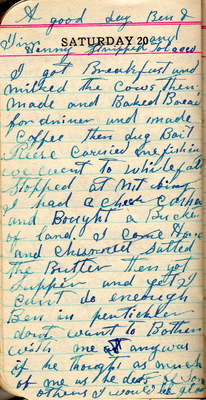 A good day Ben &
Tim and
SATURDAY 20
Henny stripped tobaco
I got Breakfust and
milked the Cows then
made and Baked Bread
for dinner and made
Coffee then dug Bait
Reese Carried me fishin
we went to whitefall
stopped at Nit
I had a check Cashed
and Bought a Bucket
of lard I Come Home
and churned salted
the Butter then got
supper and yet I
cant do enough
Ben in perticklar
dont want to Bother
with me anyway
if he thought as much
of me as he does of some
others I would be glad